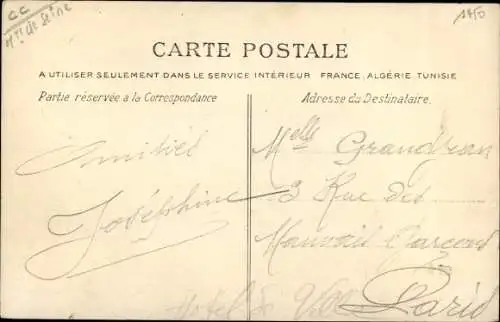 CC
1450
CARTE POSTALE
A UTILISER SEULEMENT DANS LE SERVICE INTÉRIEUR FRANCE, ALGÉRIE TUNISIE
Partie réservée à la Correspondance
Adresse du Destinataire.
Amitiés
Joséphine
Melle Grandjean
3 Rue des
Mauvais Garcons
Paris